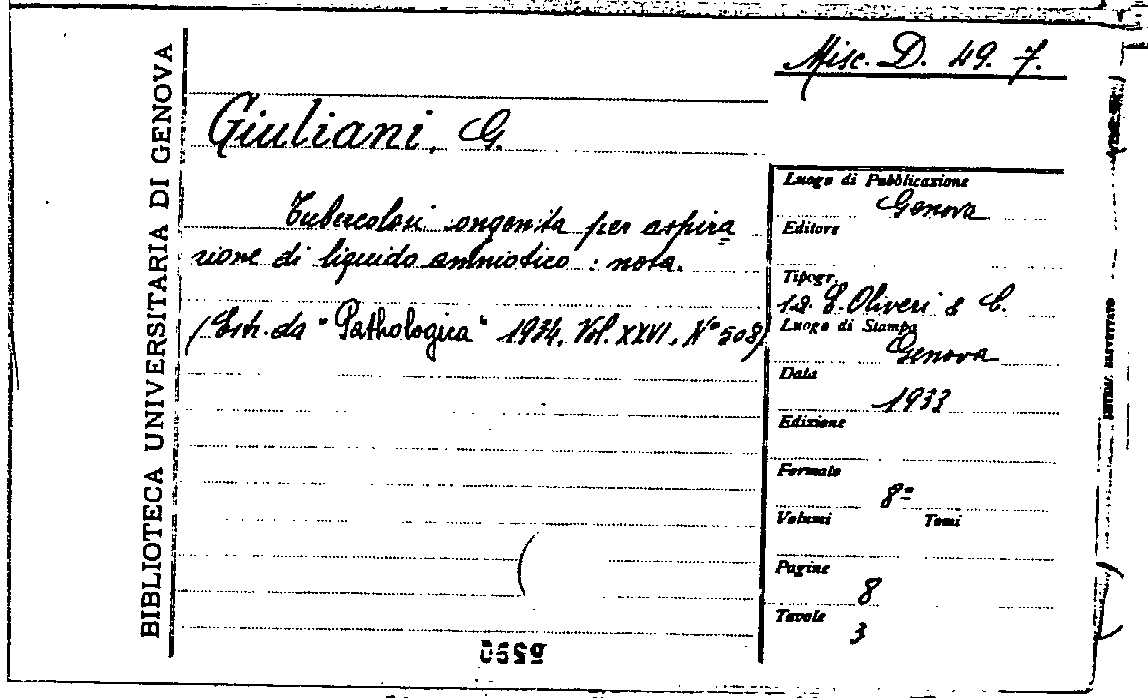 BIBLIOTECA UNIVERSITARIA DI GENOVA
Misc. D. 49. 7.
Giuliani, G.
Tubercolosi congenita per aspira=
zione di liquido amniotico : nota.
(Estr. da "Pathologica" 1934, Vol. XXVI, N° 508)
Luogo di Pubblicazione
Genova
Editore
Tipogr.
E. Oliveri & C.
Luogo di Stampa
Genova
Data
1933
Edizione
Formato
8°
Volumi Tomi
Pagine
8
Tavole
3